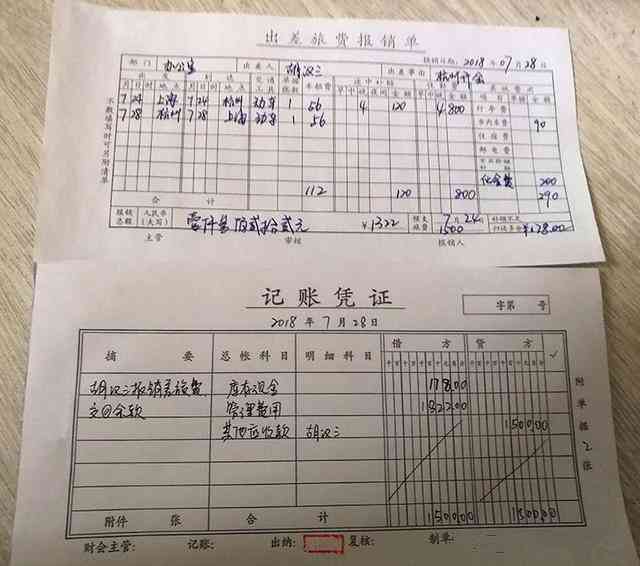 出差旅费报销单
报销日期：2018年07月28日
部门 办公室 出差人 胡汉三 出差事由
月 日 地点 月 日 地点 交通工具 车船费 金额
7 24 上海 7 24 杭州 动车 1 56 4 120 4 800 行李费
7 28 杭州 7 28 上海 动车 1 56 市内车费 90
住宿费
邮电费
200
合计 112 120 800 290
报销总额 人民币(大写) 壹仟叁佰贰拾贰元 ¥1322 预支旅费 7月24日 1500 ¥178.00
主管 审核 报销人
不敷填写时可另附清单
记账凭证
字第 号
2018年7月28日
摘要 总帐科目 明细科目 借方 贷方 ✓
千百十万千百十元角分 千百十万千百十元角分
胡汉三报销差旅费 库存现金 17800
交回余款 管理费用 132200
其他应收款 胡汉三 150000
附件 张 合计 150000 150000
附单据2张
财会主管: 记账: 出纳: 复核: 制单: